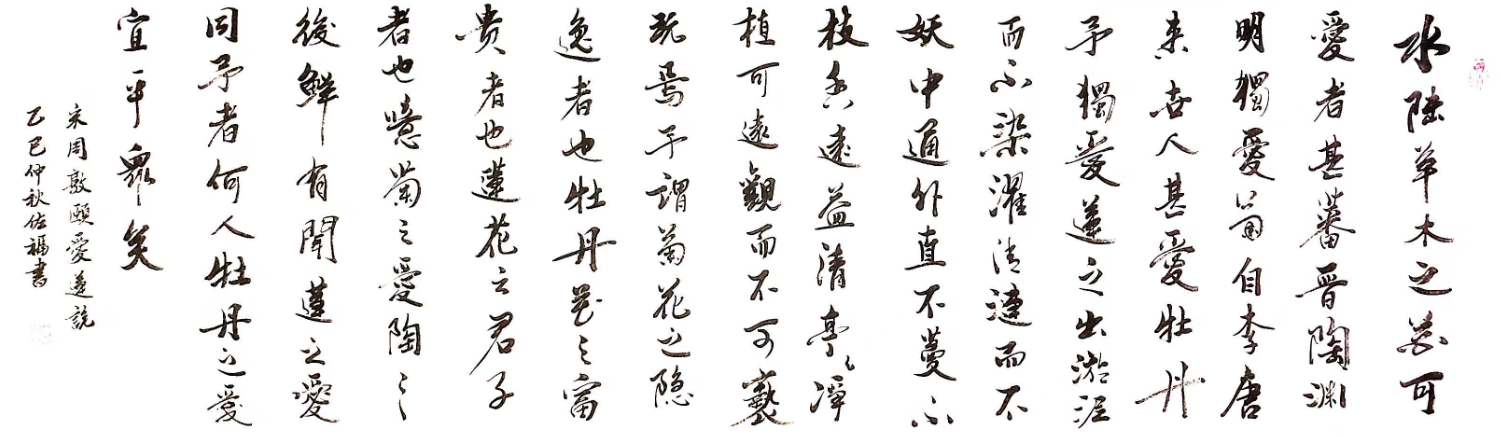 水陸草木之花可
愛者甚蕃晉陶淵
明獨愛菊自李唐
来世人甚愛牡丹
予獨愛蓮之出淤泥
而不染濯清漣而不
妖中通外直不蔓不
枝香遠益清亭々淨
植可遠觀而不可褻
玩焉予謂菊花之隐
逸者也牡丹花之富
貴者也蓮花之君子
者也噫菊之愛陶之
後鮮有聞蓮之愛
同予者何人牡丹之愛
宜乎衆矣
宋周敦頤愛蓮説
乙巳仲秋佐福書